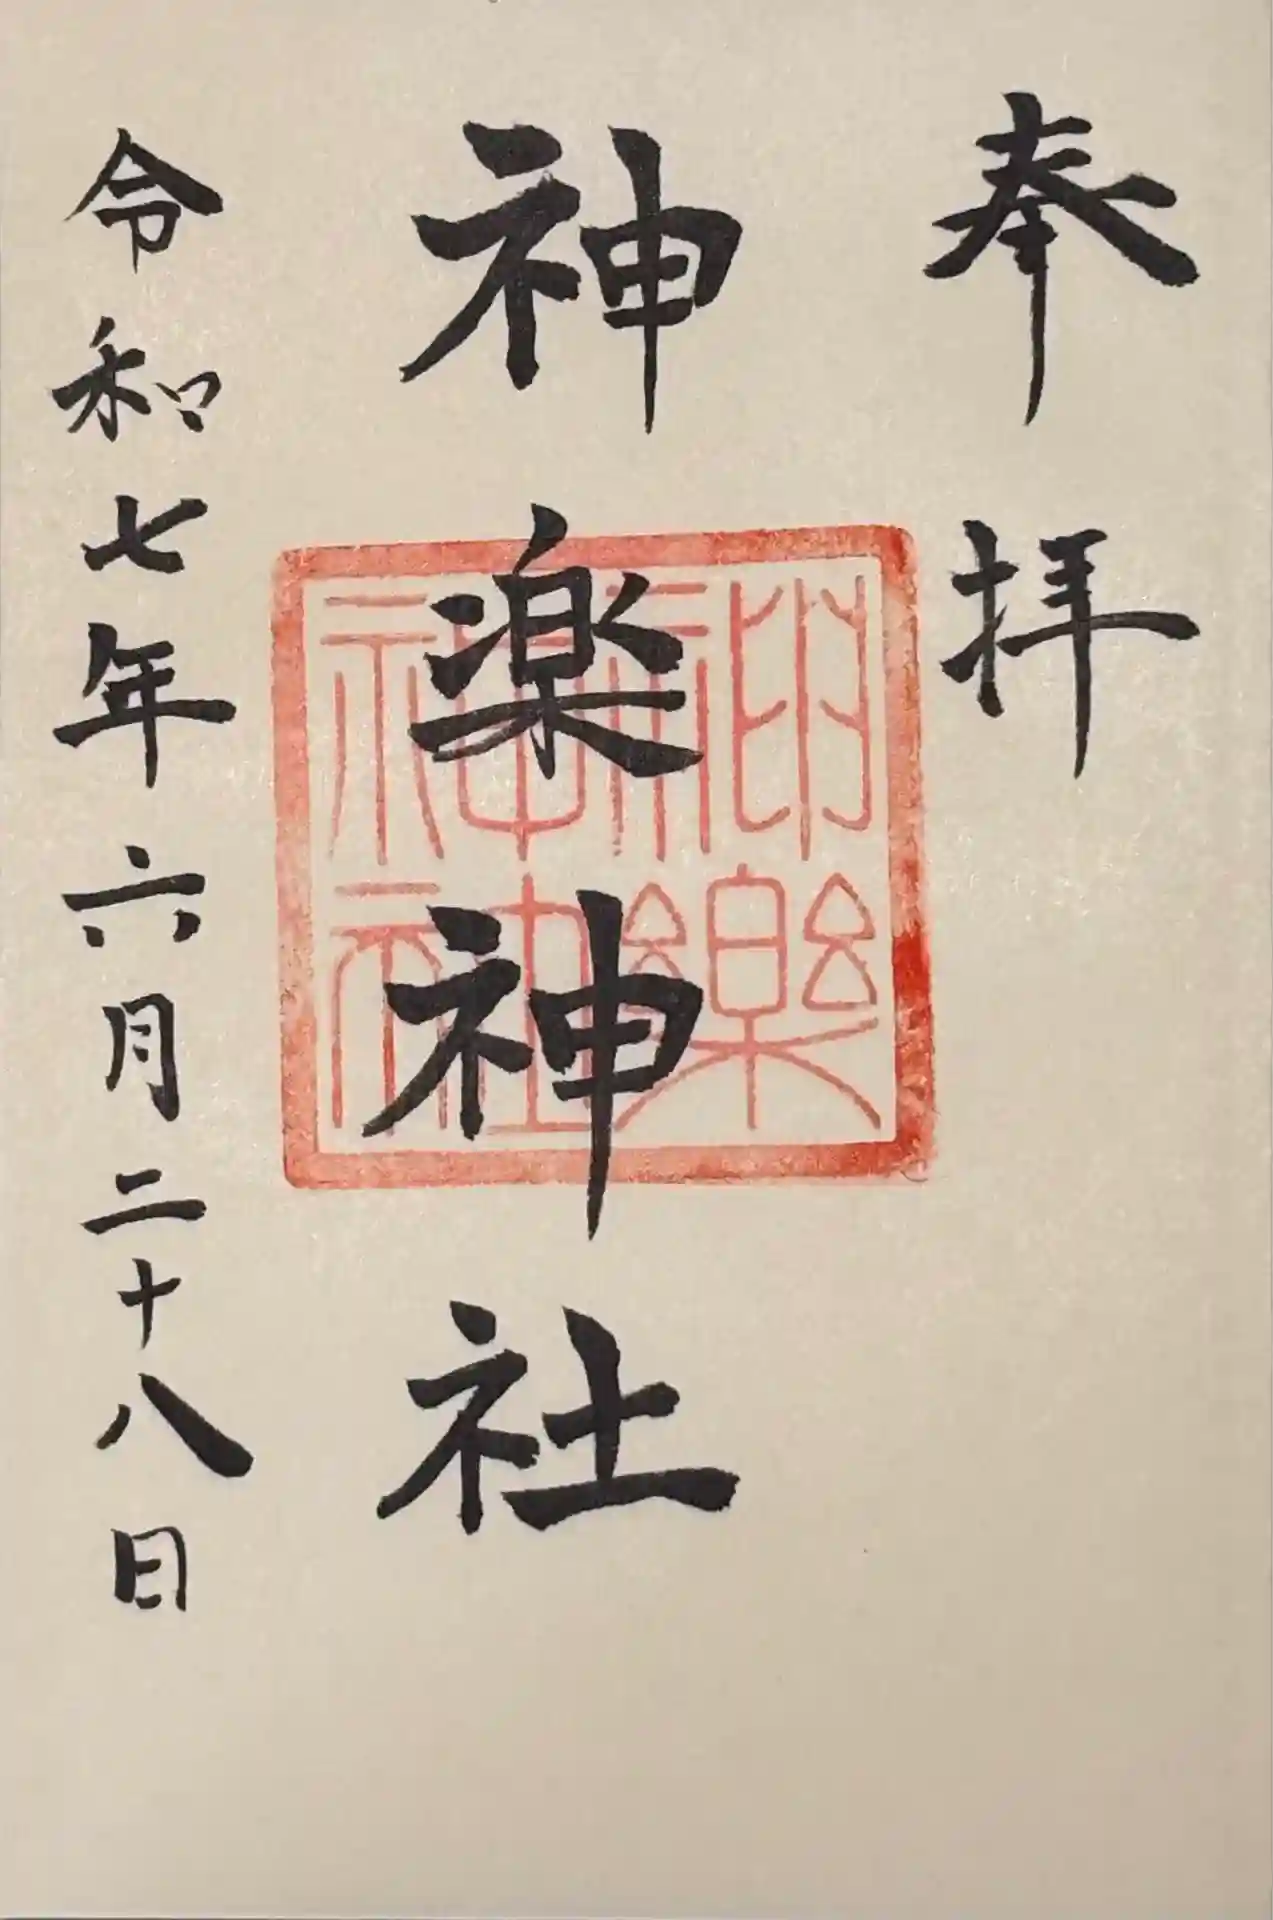 奉拝
神楽神社
神樂
神社
令和七年六月二十八日